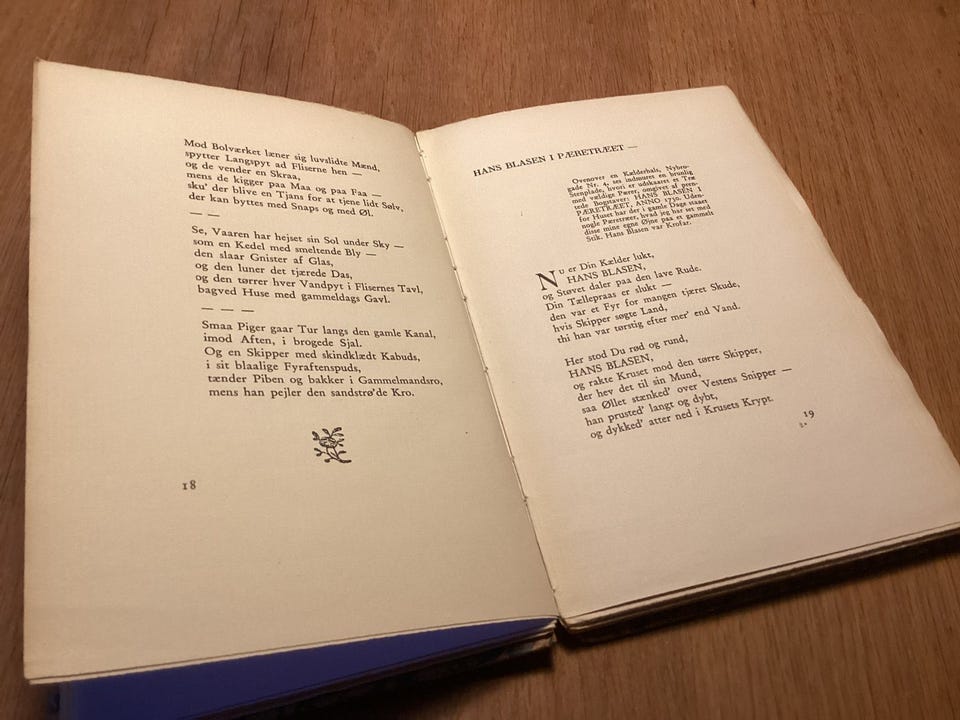 Mod Bolværket læner sig luvslidte Mænd,
spytter Langspyt ad Fliserne hen —
og de vender en Skraa,
mens de kigger paa Maa og paa Faa —
sku' der blive en Tjans for at tjene lidt Sølv,
der kan byttes med Snaps og med Øl.
— —
Se, Vaaren har hejset sin Sol under Sky —
som en Kedel med smeltende Bly —
den slaar Gnister af Glas,
og den luner det tjærede Das,
og den tørrer hver Vandpyt i Flisernes Tavl,
bagved Huse med gammeldags Gavl.
— — —
Smaa Piger gaar Tur langs den gamle Kanal,
imod Aften, i brogede Sjal.
Og en Skipper med skindklædt Kabuds,
i sit blaalige Fyraftenspuds,
tænder Piben og bakker i Gammelmandsro,
mens han pejler den sandstrø'de Kro.
18
HANS BLASEN I PÆRETRÆET —
Ovenover en Kælderhals, Nybro-
gade Nr. 4, ses indmuret en brunlig
Stenplade, hvori er udskaaret et Træ
med vældige Pærer, omgivet af pren-
tede Bogstaver: HANS BLASEN I
PÆRETRÆET, ANNO 1730. Uden-
for Huset har der i gamle Dage staaet
nogle Pæretræer, hvad jeg har set med
disse mine egne Øjne paa et gammelt
Stik. Hans Blasen var Krofar.
Nu er Din Kælder lukt,
HANS BLASEN,
og Støvet daler paa den lave Rude.
Din Tællepraas er slukt —
den var et Fyr for mangen tjæret Skude,
hvis Skipper søgte Land,
thi han var tørstig efter mer' end Vand.
Her stod Du rød og rund,
HANS BLASEN,
og rakte Kruset mod den tørre Skipper,
der hev det til sin Mund,
saa Øllet stænked' over Vestens Snipper —
han prusted' langt og dybt,
og dykked' atter ned i Krusets Krypt.
19
2*